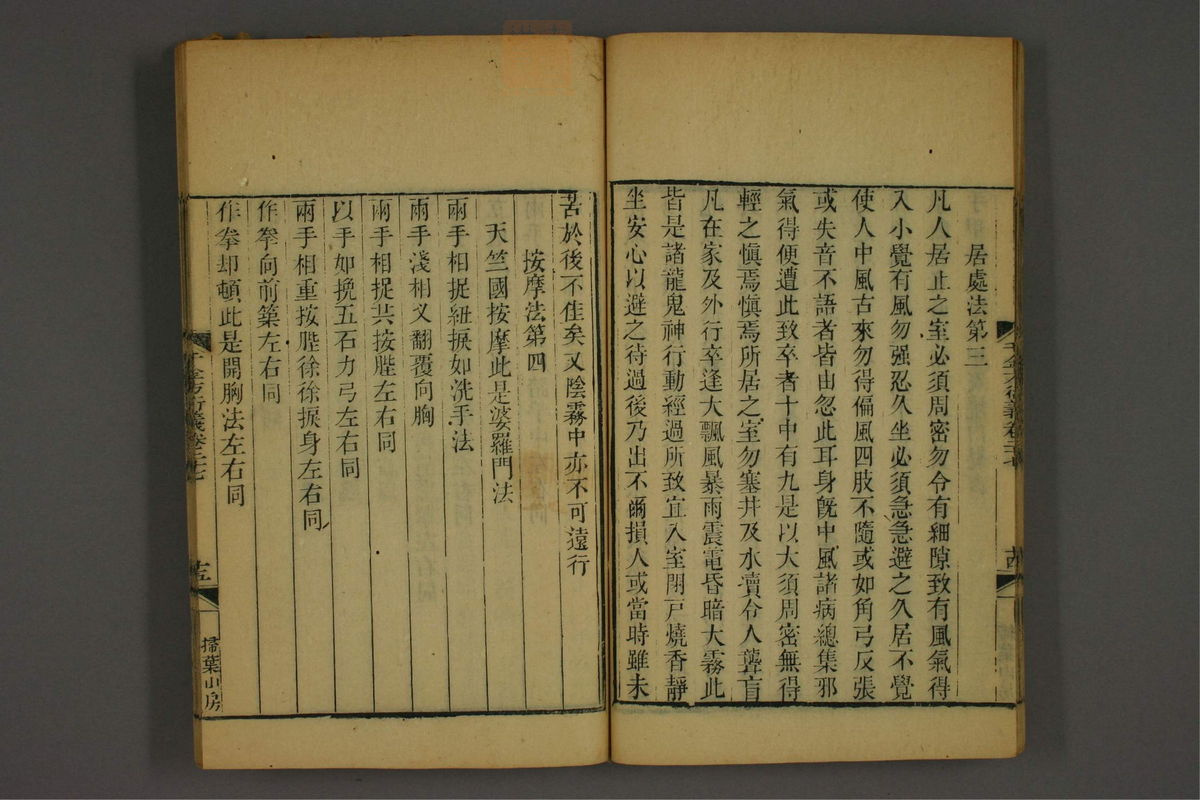 居處法第三
凡人居止之室必須周密勿令有細隙致有風氣得
入小覺有風勿强忍久坐必須急急避之久居不覺
使人中風古來勿得偏風四肢不隨或如角弓反張
或失音不語者皆由忽此耳身旣中風諸病總集邪
氣得便遭此致卒者十中有九是以大須周密無得
輕之愼焉愼焉所居之室勿塞井及水瀆令人聾盲
凡在家及外行卒逢大飄風暴雨震電昏暗大霧此
皆是諸龍鬼神行動經過所致宜入室閉戸燒香靜
坐安心以避之待過後乃出不爾損人或當時雖未
千金方衍義卷二十七
十四
苦於後不佳矣又陰霧中亦不可遠行
按摩法第四
天竺國按摩此是婆羅門法
兩手相捉紐捩如洗手法
兩手淺相叉翻覆向胸
兩手相捉共按䏶左右同
以手如挽五石力弓左右同
兩手相重按䏶徐徐捩身左右同
作拳向前築左右同
作拳却頓此是開胸法左右同
千金方衍義卷二十七
十五
掃葉山房